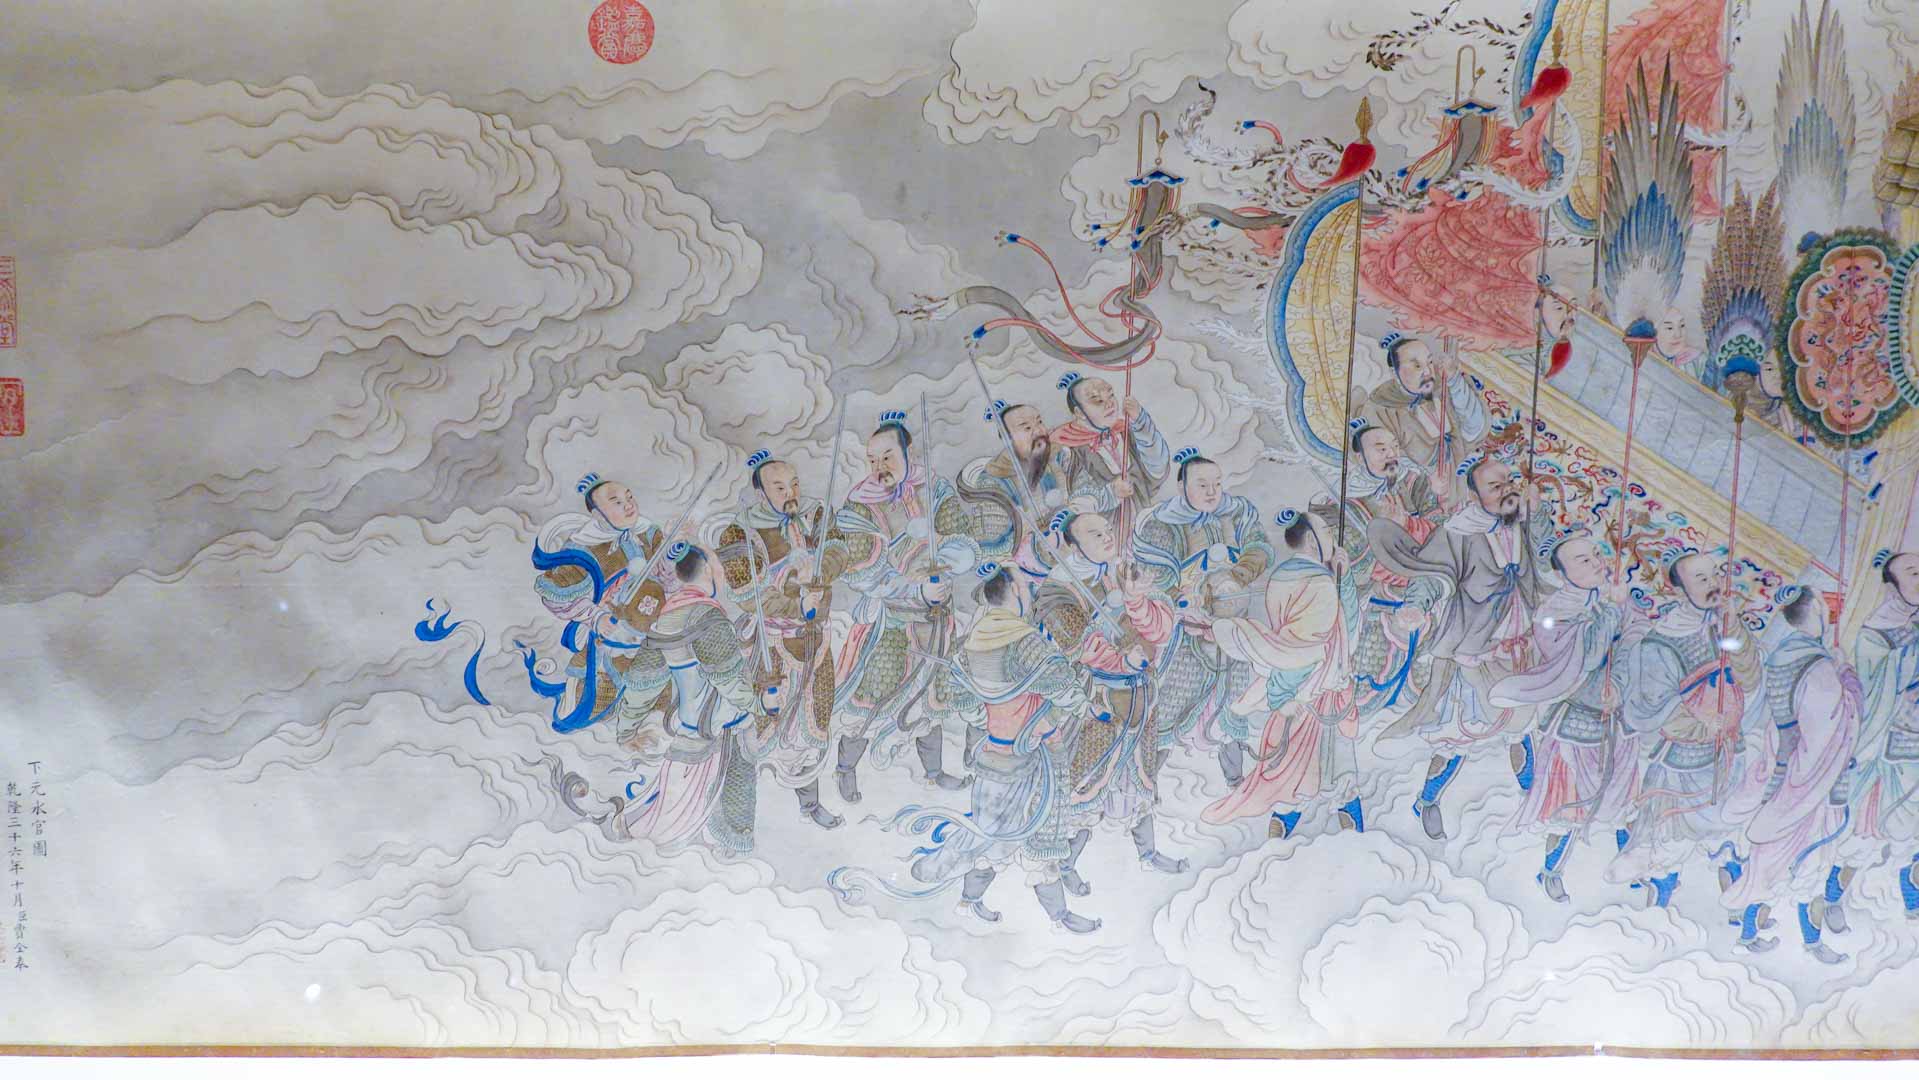 嘉慶
鑑賞
下元水官圖
乾隆三十六年十月臣賈全奉